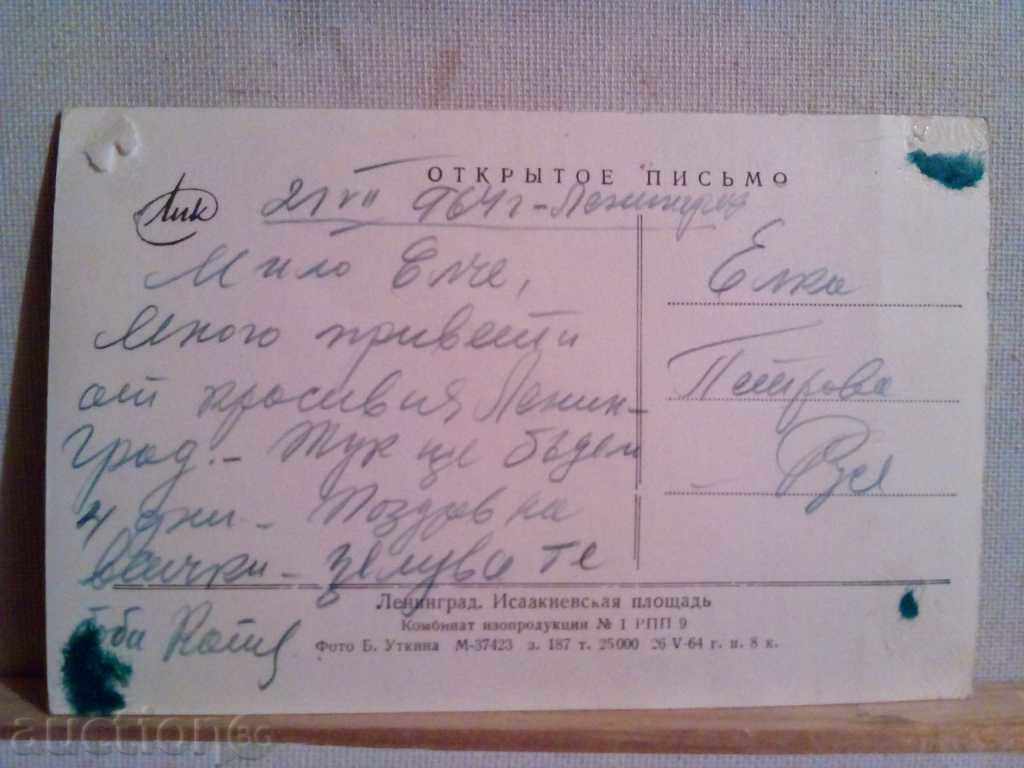 ОТКРЫТОЕ ПИСЬМО
Лик
21 VII 964 г - Ленинград
Мило Елче,
Много привети
от красивия Ленин-
град. - Тук ще бъдем
4 дни - Поздрав на
всички - целува те
Елка
Петрова
Русе
Ленинград. Исаакиевская площадь
Комбинат изопродукции № 1 РПП 9
Фото Б. Уткина М-37423 з. 187 т. 25000 26 V-64 г. ц. 8 к.
auction